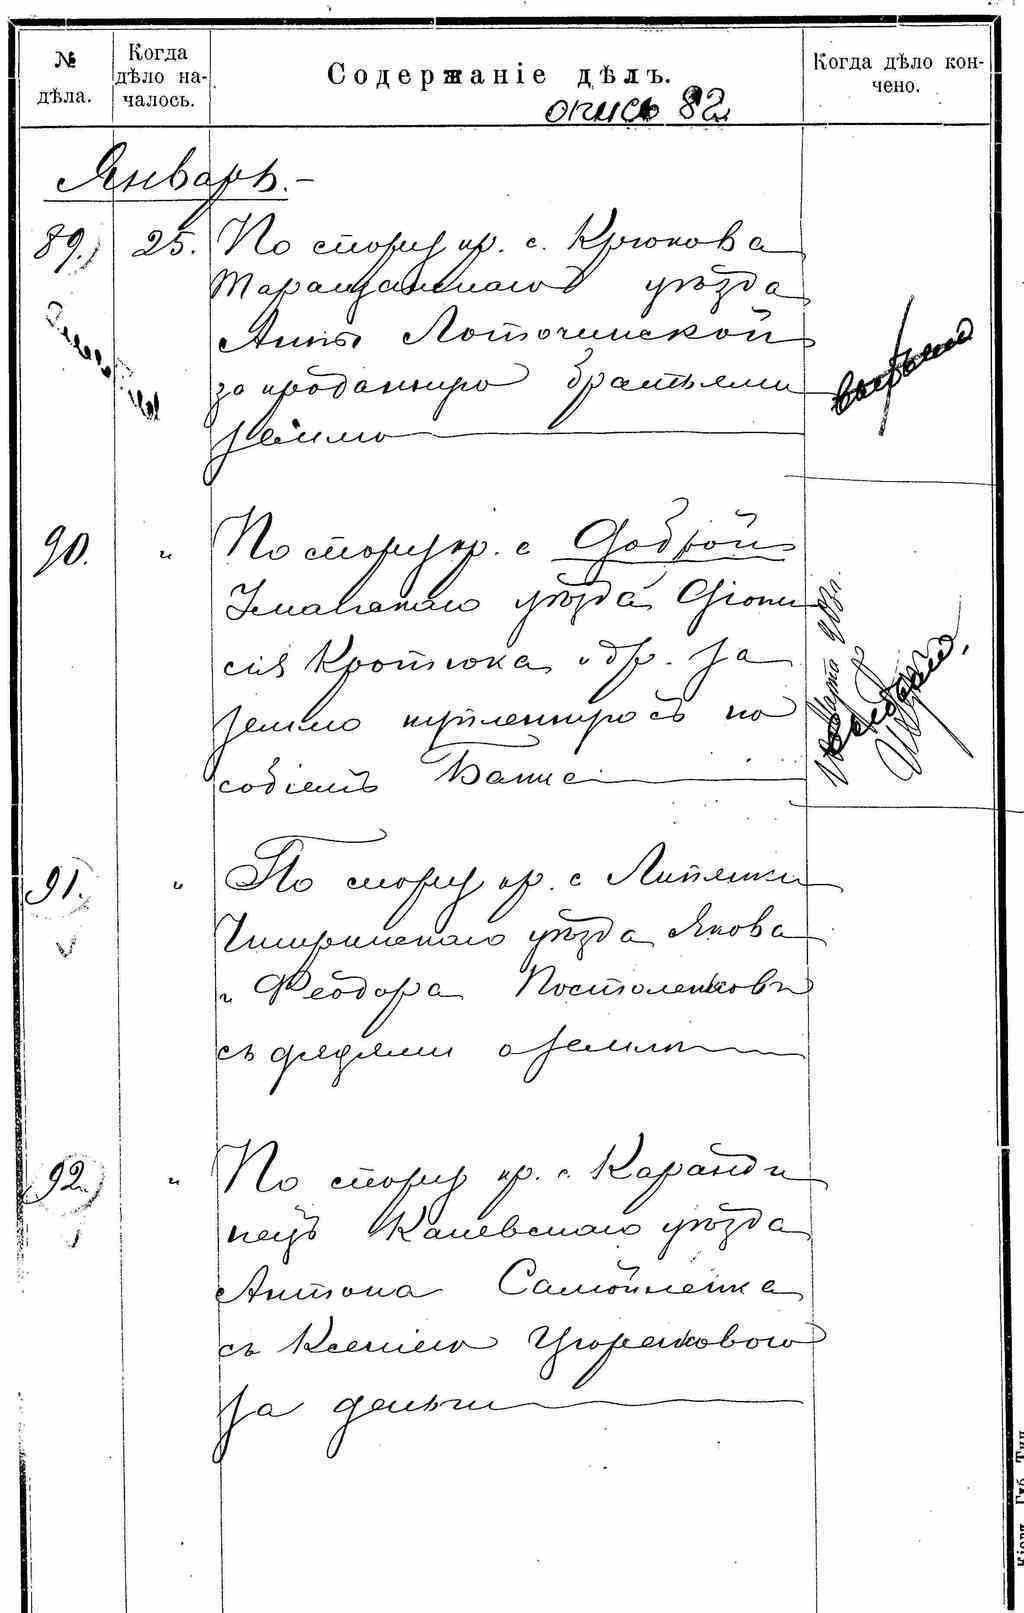 № дѣла.
Когда дѣло на-
чалось.
Содержаніе дѣлъ.
Когда дѣло кон-
чено.
опись 82
Январь.-
89.) 25. По спору кр. с. Крюкова
Таращанскаго уѣзда
Анны Лоточинской
за проданную братьями
землю
выбыло
90. „ По спору кр. с. Доброй
Уманскаго уѣзда Діони
сія Кротюка и др. за
землю купленную съ по
собіемъ Банка
Марта 903 г.
91. „ По спору кр. с. Липянки
Чигиринскаго уѣзда Якова
и Феодора Постоленковъ
съ дядями о землѣ
92. „ По спору кр. с. Каранди
нецъ Каневскаго уѣзда
Антона Самойленка
съ Ксеніею Угорековою
за деньги
Кіевъ. Губ. Тип.